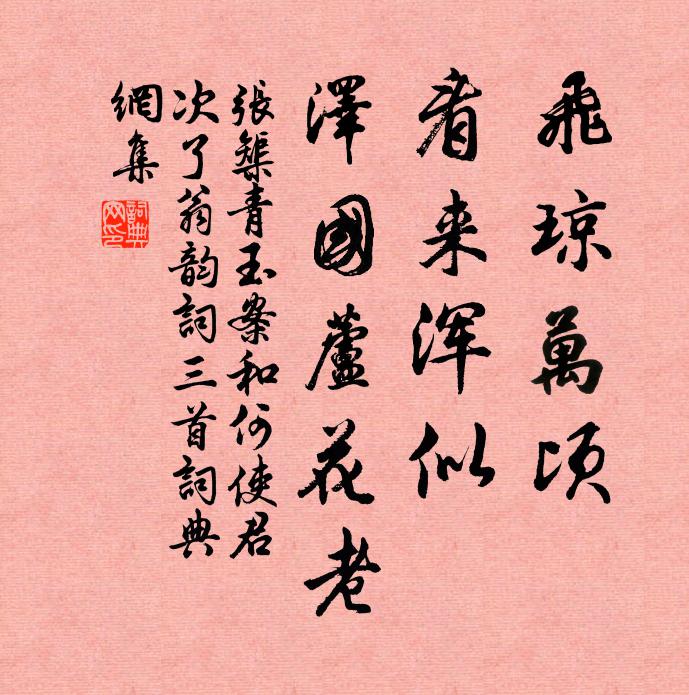 飛瓊萬頃
看来渾似
澤國蘆花老
張榘青玉案和何使君
次了翁韵詞三首詞典
網集
詞典網印